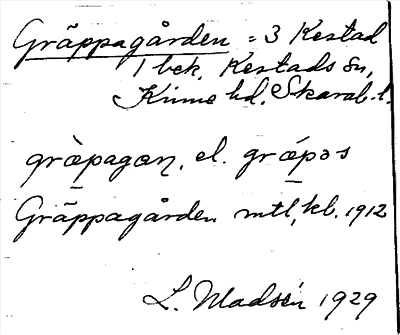 Gräppagården = 3 Kestad
1 bek. Kestads sn,
Kinne hd. Skarab. l.
grǎpagan, el. grǎpəs
Gräppagården mtl, kb. 1912
L. Madsén 1929